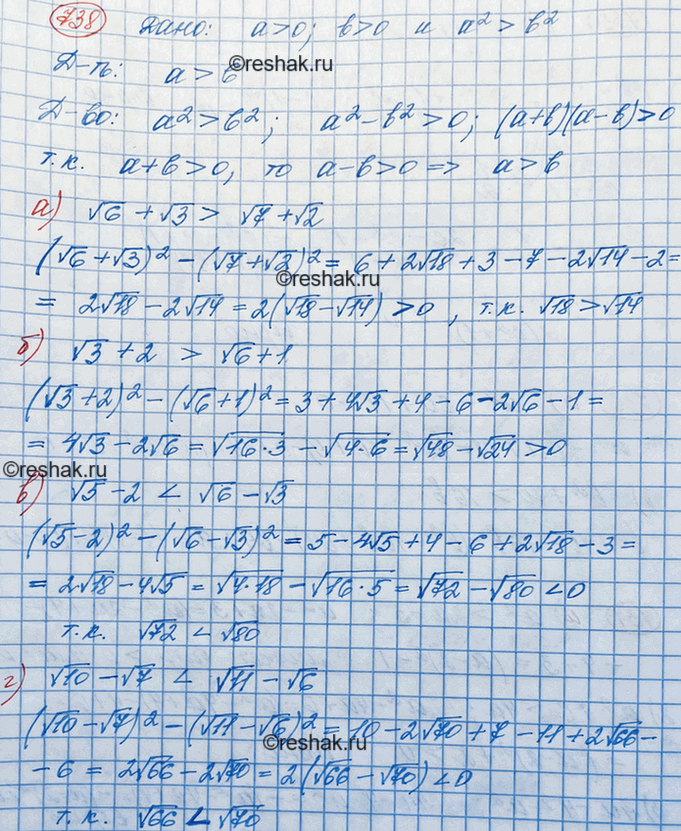 738 Дано: a>0; b>0 и a²>b²
Д-ть: a>b
©reshak.ru
Д-во: a²>b²; a²-b²>0; (a+b)(a-b)>0
т.к. a+b>0, то a-b>0 => a>b
а) √6+√3 > √7+√2
(√6+√3)²-(√7+√2)²=6+2√18+3-7-2√14-2=
©reshak.ru
= 2√18-2√14=2(√18-√14)>0, т.к. √18>√14
б) √3+2 > √6+1
(√3+2)²-(√6+1)²=3+4√3+4-6-2√6-1=
= 4√3-2√6=√16·3-√4·6=√48-√24>0
©reshak.ru
в) √5-2 < √6-√3
(√5-2)²-(√6-√3)²=5-4√5+4-6+2√18-3=
= 2√18-4√5=√4·18-√16·5=√72-√80<0
т.к. √72<√80
г) √10-√7 < √11-√6
(√10-√7)²-(√11-√6)²=10-2√70+7-11+2√66-
©reshak.ru
-6=2√66-2√70=2(√66-√70)<0
т.к. √66<√70